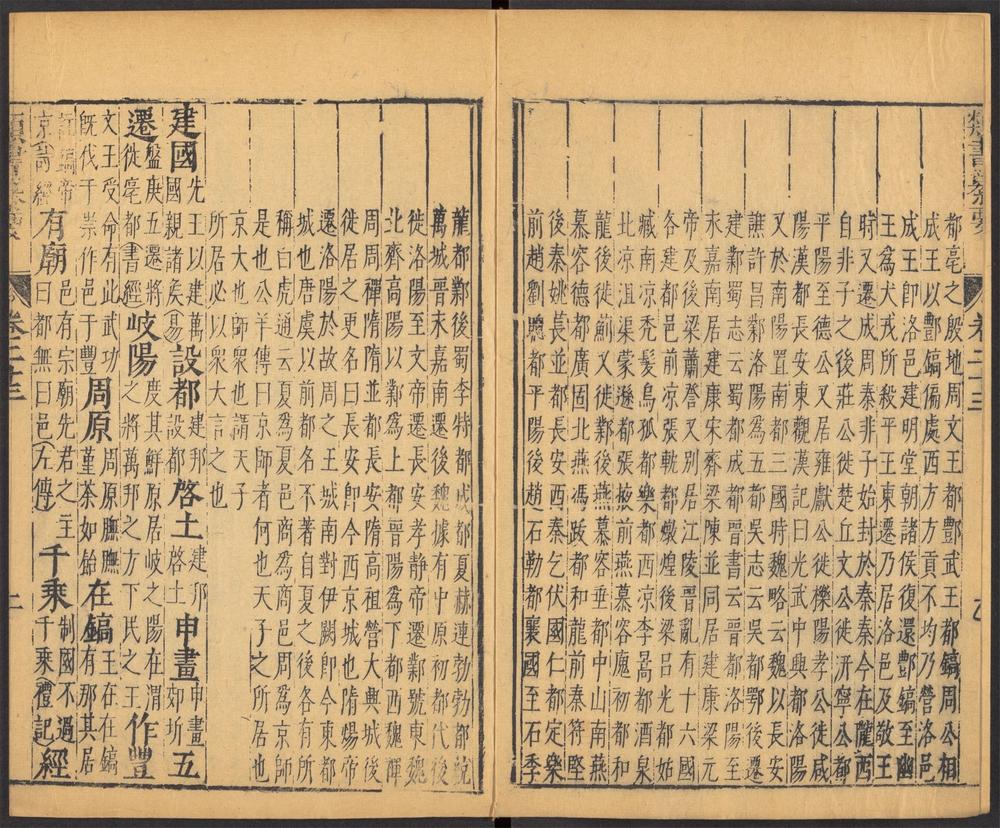 都亳之殷地周文王都酆武王都鎬周公相
成王以酆鎬偏處西方方貢不均乃營洛邑
成王即洛邑建明堂朝諸侯復還酆鎬至幽
王為犬戎所殺平王東遷乃居洛邑及敬王
時又遷成周秦非子始封於秦秦今在隴西
自非子之後莊公徙楚丘文公徙汧寧公都
平陽至德公又居雍獻公徙櫟陽孝公徙咸
陽漢都長安東觀漢記曰光武中興都洛陽
又於南陽置南都三國時魏略云魏以長安
譙許昌鄴洛陽為五都吳志云吳都鄂後遷
建鄴蜀志云蜀都成都晉書云晉都洛陽至
永嘉南居建康宋齊梁陳並同居建康梁元
帝及後梁蕭詧又別居江陵晉亂有十六國
各建都邑前凉張軌都燉煌後梁呂光都始
臧南凉禿髮烏孤都樂都西凉李暠都酒泉
北凉沮渠蒙遜都張掖前燕慕容廆初都和
龍後徙薊又徙鄴後燕慕容垂都中山南燕
慕容德都廣固北燕馮跋都和龍前秦苻堅
後秦姚萇並都長安西秦乞伏國仁都定樂
前趙劉聰都平陽後趙石勒都襄國至石季
龍都鄴後蜀李特都成都夏赫連勃勃都統
萬城晉末嘉南遷後魏據有中原初都代後
徙洛陽至文帝遷長安孝靜帝遷鄴號東魏
北齊高陽以鄴為上都晉陽為下都西魏禪
周周禪隋隋並都長安隋高祖營大興城後
徙居之更名曰長安即今西京城也隋煬帝
遷洛陽於故周之王城南對伊闕即今東都
城也唐虞以前都名不著自夏之後各有所
稱白虎通云夏為夏邑商為商邑周為京師
是也公羊傳曰京師者何也天子之所居也
京大也師眾也謂天子
所居必以眾大言之也
建國先王以建萬國親諸矦易設都建邦設都啓土建邦啓土申畫申畫郊圻五
遷盤庚五遷將徙亳都書經岐陽度其鮮原居岐之陽在渭之將萬邦之方下民之王作豐
文王受命有此武功既伐于崇作邑于豐周原周原膴膴菫荼如飴在鎬王在在鎬有那其居
京詩經有廟曰都邑有宗廟先君之主曰都無曰邑左傳千乘制國不過千乘禮記經